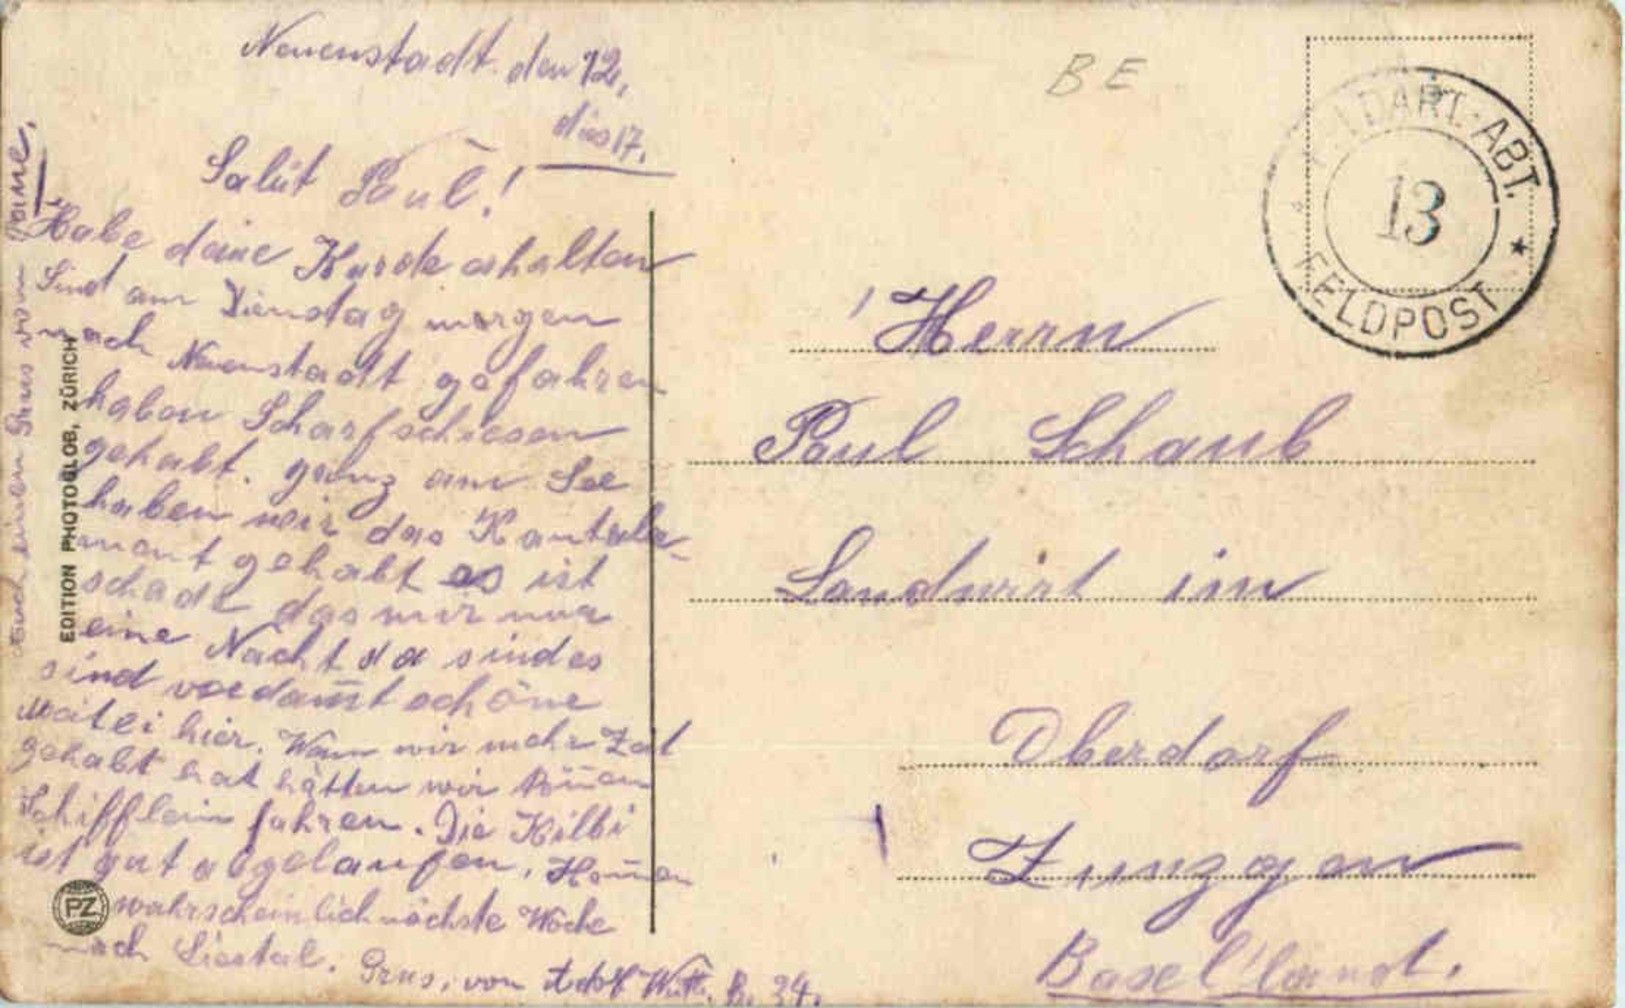 Neuenstadt. den 12.
Salüt Paul!
Habe deine Karde erhalten
Sind am Dienstag morgen
nach Neuenstadt gefahren
haben Scharfschiesen
gehabt. ganz am See
haben wir das Kantole-
ment gehabt es ist
schade das wir nur
eine Nacht da sind es
sind verdamt schöne
Meitei hier. Wenn wir mehr Zeit
gehabt hat hätten wir können
Schifflein fahren. Die Kilbi
ist gut abgelaufen. Komen
wahrscheinlich nächste Woche
nach Liestal. Grus. von Adolf B. 34.
Auch einen Grus von
EDITION PHOTOGLOB, ZÜRICH
PZ
BE
FELDART.-ABT.
13
FELDPOST
Herrn
Paul Schaub
Landwirt im
Oberdorf
Zunzgen
Basel'land.